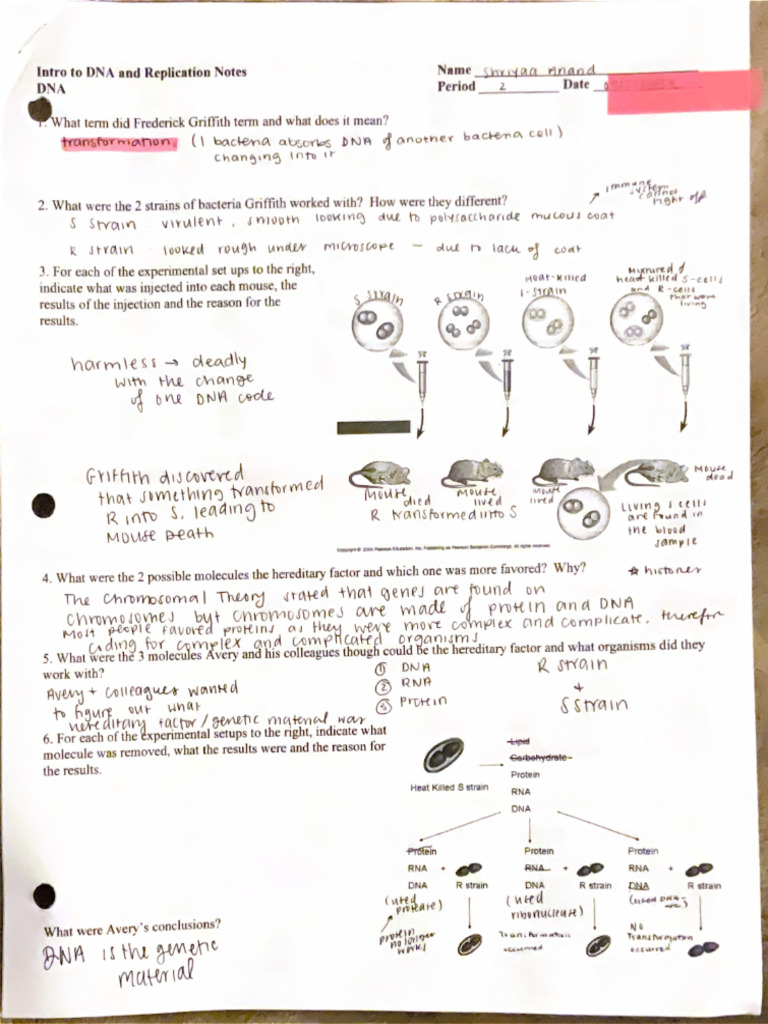 Intro to DNA and Replication Notes
DNA
Name Shriyaa Anand
Period 2 Date
1. What term did Frederick Griffith term and what does it mean?
transformation (1 bacteria absorbs DNA of another bacteria cell)
changing into it
2. What were the 2 strains of bacteria Griffith worked with? How were they different?
immune system cannot fight off
S strain virulent, smooth looking due to polysaccharide mucous coat
R strain looked rough under microscope — due to lack of coat
3. For each of the experimental set ups to the right,
indicate what was injected into each mouse, the
results of the injection and the reason for the
results.
S strain
R strain
Heat-killed
S-strain
Mixtured of
heat killed S-cells
and R-cells
that were
living
harmless → deadly
with the change
of one DNA code
Griffith discovered
that something transformed
R into S, leading to
mouse death
Mouse died
Mouse lived
Mouse lived
Mouse dead
R transformed into S
Living S cells
are found in
the blood
sample
4. What were the 2 possible molecules the hereditary factor and which one was more favored? Why?
☆ histones
The Chromosomal Theory stated that genes are found on
chromosomes byt chromosomes are made of protein and DNA
Most people favored proteins, as they were more complex and complicate, therefore
coding for complex and complicated organisms
5. What were the 3 molecules Avery and his colleagues though could be the hereditary factor and what organisms did they
work with?
① DNA
② RNA
③ Protein
R strain
+
S strain
Avery + colleagues wanted
to figure out what
hereditary factor/genetic material was
6. For each of the experimental setups to the right, indicate what
molecule was removed, what the results were and the reason for
the results.
Heat Killed S strain
Lipid
Carbohydrate
Protein
RNA
DNA
Protein
RNA +
DNA R strain
Protein
RNA +
DNA R strain
Protein
RNA +
DNA R strain
(used
protease)
protein
no longer
works
(used
ribonuclease)
Transformation
occurred
(used DNA-
No
Transformation
occurred
What were Avery's conclusions?
DNA is the genetic
material